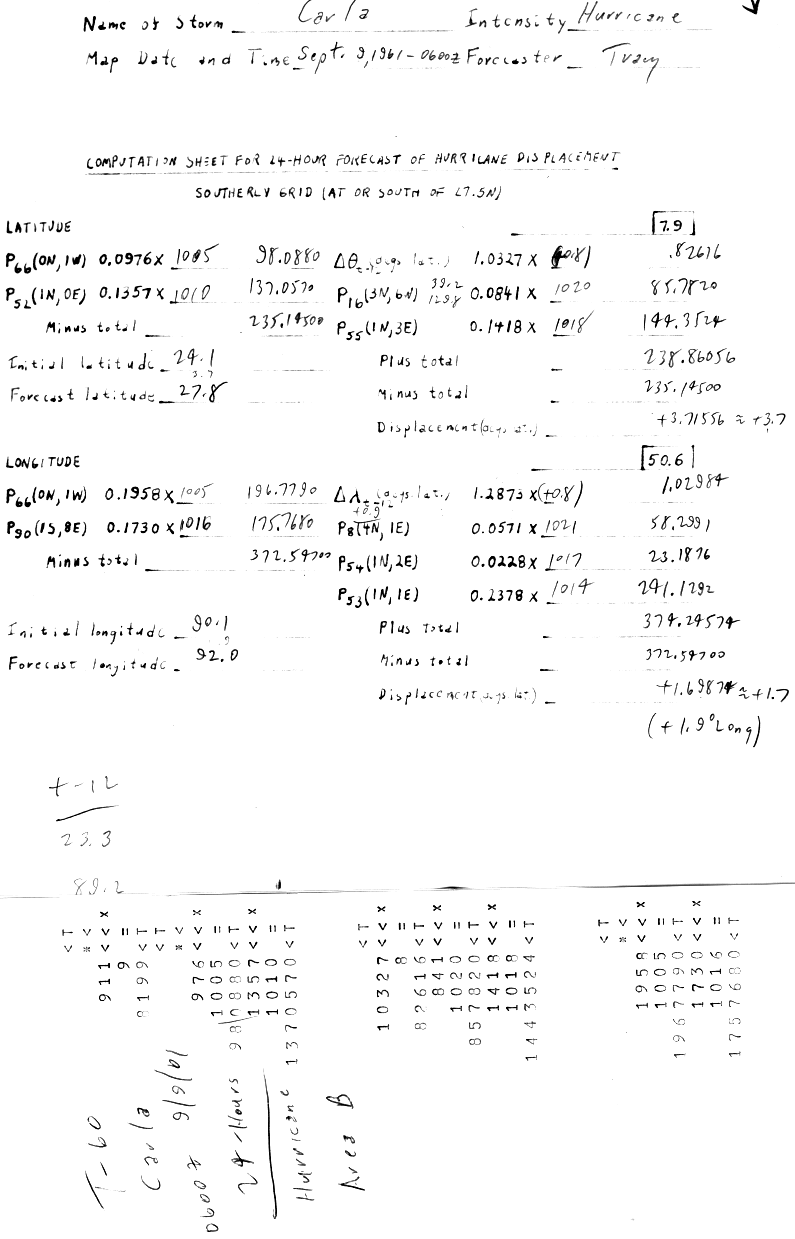 Name of Storm Carla Intensity Hurricane
Map Date and Time Sept. 9, 1961 - 0600z Forecaster Tracy
COMPUTATION SHEET FOR 24-HOUR FORECAST OF HURRICANE DISPLACEMENT
SOUTHERLY GRID (AT OR SOUTH OF 27.5N)
LATITUDE 7.9
P66(0N, 1W) 0.0976 X 1005 98.0880 Δθt-12(degs lat.) 1.0327 X (0.8) .82616
P52(1N, 0E) 0.1357 X 1010 137.0570 P16(3N, 6W) 0.0841 X 1020 85.7820
Minus total 235.14500 P55(1N, 3E) 0.1418 X 1018 144.3524
Initial latitude 24.1 Plus total 238.86056
3.7
Forecast latitude 27.8 Minus total 235.14500
Displacement (degs lat.) +3.71556 ≈ +3.7
LONGITUDE 50.6
P66(0N, 1W) 0.1958 X 1005 196.7790 Δλt-12(degs. lat.) 1.2873 X (+0.8) 1.02984
+0.9
P90(1S, 8E) 0.1730 X 1016 175.7680 P8(4N, 1E) 0.0571 X 1021 58.2991
Minus total 372.54700 P54(1N, 2E) 0.0228 X 1017 23.1876
P53(1N, 1E) 0.2378 X 1014 241.1292
Initial longitude 90.1 Plus Total 374.24574
9
Forecast longitude 92.0 Minus total 372.54700
Displacement (degs lat) +1.69874 ≈ +1.7
(+1.9° Long)
t-12
23.3
89.2
< T
* <
911 < < X
9 =
8199 < T
< T
* <
976 < < X
1005 =
980880 < T
1357 < < X
1010 =
1370570 < T
< T
10327 < < X
8 =
82616 < T
841 < < X
1020 =
857820 < T
1418 < < X
1018 =
1443524 < T
< T
* <
1958 < < X
1005 =
1967790 < T
1730 < < X
1016 =
1757680 < T
T-60
Carla
0600z 9/9/61
24-Hours
Hurricane
Area B